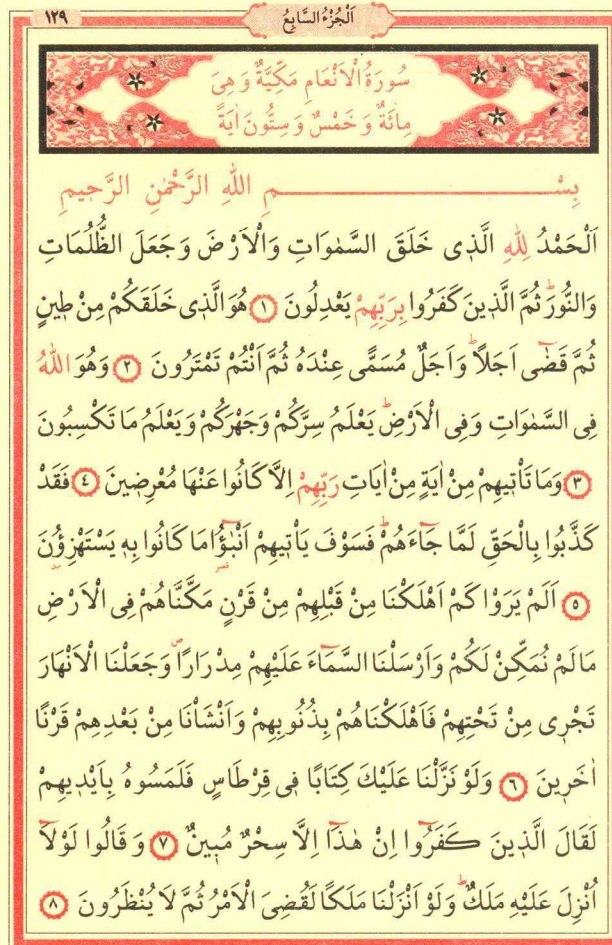 ١٢٩
اَلْجُزْءُ السَّابِعُ
سُورَةُ الْاَنْعَامِ مَكِّيَّةٌ وَهِيَ
مِائَةٌ وَخَمْسٌ وَسِتُّونَ اٰيَةً
بِسْمِ اللهِ الرَّحْمٰنِ الرَّحٖيمِ
اَلْحَمْدُ لِلهِ الَّذٖى خَلَقَ السَّمٰوَاتِ وَالْاَرْضَ وَجَعَلَ الظُّلُمَاتِ
وَالنُّورَؕ ثُمَّ الَّذٖينَ كَفَرُوا بِرَبِّهِمْ يَعْدِلُونَ ﴿١﴾ هُوَ الَّذٖى خَلَقَكُمْ مِنْ طٖينٍ
ثُمَّ قَضٰٓى اَجَلًاؕ وَاَجَلٌ مُسَمًّى عِنْدَهُ ثُمَّ اَنْتُمْ تَمْتَرُونَ ﴿٢﴾ وَهُوَ اللهُ
فِى السَّمٰوَاتِ وَفِى الْاَرْضِؕ يَعْلَمُ سِرَّكُمْ وَجَهْرَكُمْ وَيَعْلَمُ مَا تَكْسِبُونَ
﴿٣﴾ وَمَا تَأْتٖيهِمْ مِنْ اٰيَةٍ مِنْ اٰيَاتِ رَبِّهِمْ اِلَّا كَانُوا عَنْهَا مُعْرِضٖينَ ﴿٤﴾ فَقَدْ
كَذَّبُوا بِالْحَقِّ لَمَّا جَٓاءَهُمْؕ فَسَوْفَ يَأْتٖيهِمْ اَنْبٰٓؤُا مَا كَانُوا بِهٖ يَسْتَهْزِؤُنَ
﴿٥﴾ اَلَمْ يَرَوْا كَمْ اَهْلَكْنَا مِنْ قَبْلِهِمْ مِنْ قَرْنٍ مَكَّنَّاهُمْ فِى الْاَرْضِ
مَا لَمْ نُمَكِّنْ لَكُمْ وَاَرْسَلْنَا السَّمَٓاءَ عَلَيْهِمْ مِدْرَارًا وَجَعَلْنَا الْاَنْهَارَ
تَجْرٖى مِنْ تَحْتِهِمْ فَاَهْلَكْنَاهُمْ بِذُنُوبِهِمْ وَاَنْشَاْنَا مِنْ بَعْدِهِمْ قَرْنًا
اٰخَرٖينَ ﴿٦﴾ وَلَوْ نَزَّلْنَا عَلَيْكَ كِتَابًا فٖى قِرْطَاسٍ فَلَمَسُوهُ بِاَيْدٖيهِمْ
لَقَالَ الَّذٖينَ كَفَرُٓوا اِنْ هٰذَٓا اِلَّا سِحْرٌ مُبٖينٌ ﴿٧﴾ وَقَالُوا لَوْلَٓا
اُنْزِلَ عَلَيْهِ مَلَكٌؕ وَلَوْ اَنْزَلْنَا مَلَكًا لَقُضِىَ الْاَمْرُ ثُمَّ لَا يُنْظَرُونَ ﴿٨﴾